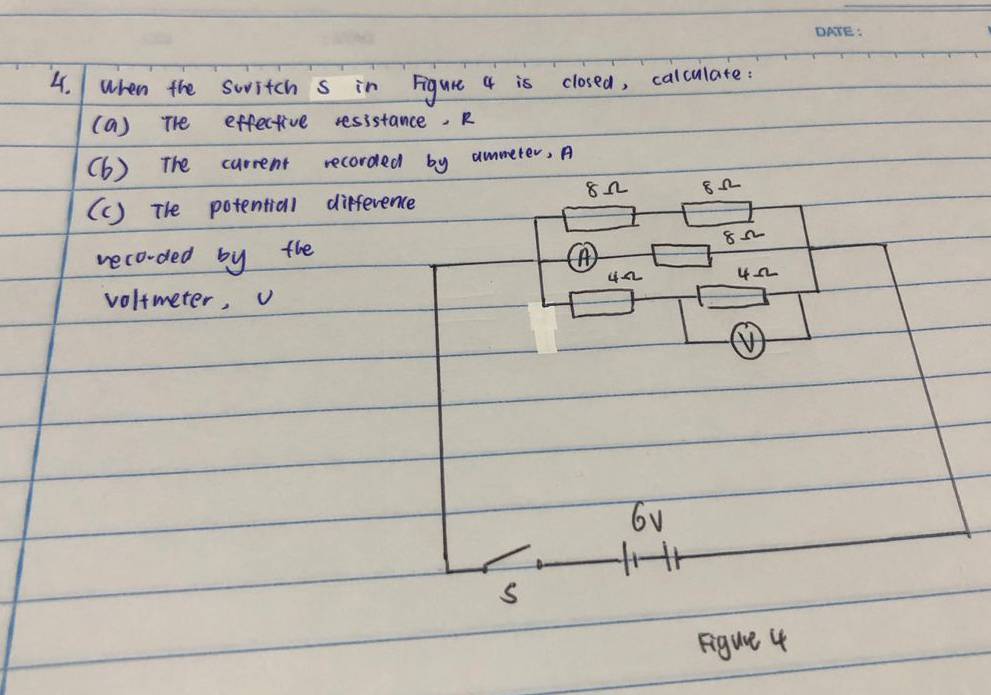 DATE:
4. When the switch S in Figure 4 is closed, calculate:
(a) The effective resistance, R
(b) The current recorded by ammeter, A
(c) The potential difference
recorded by the
voltmeter, V
8Ω 8Ω
8Ω
A
4Ω 4Ω
V
6V
S
Figure 4